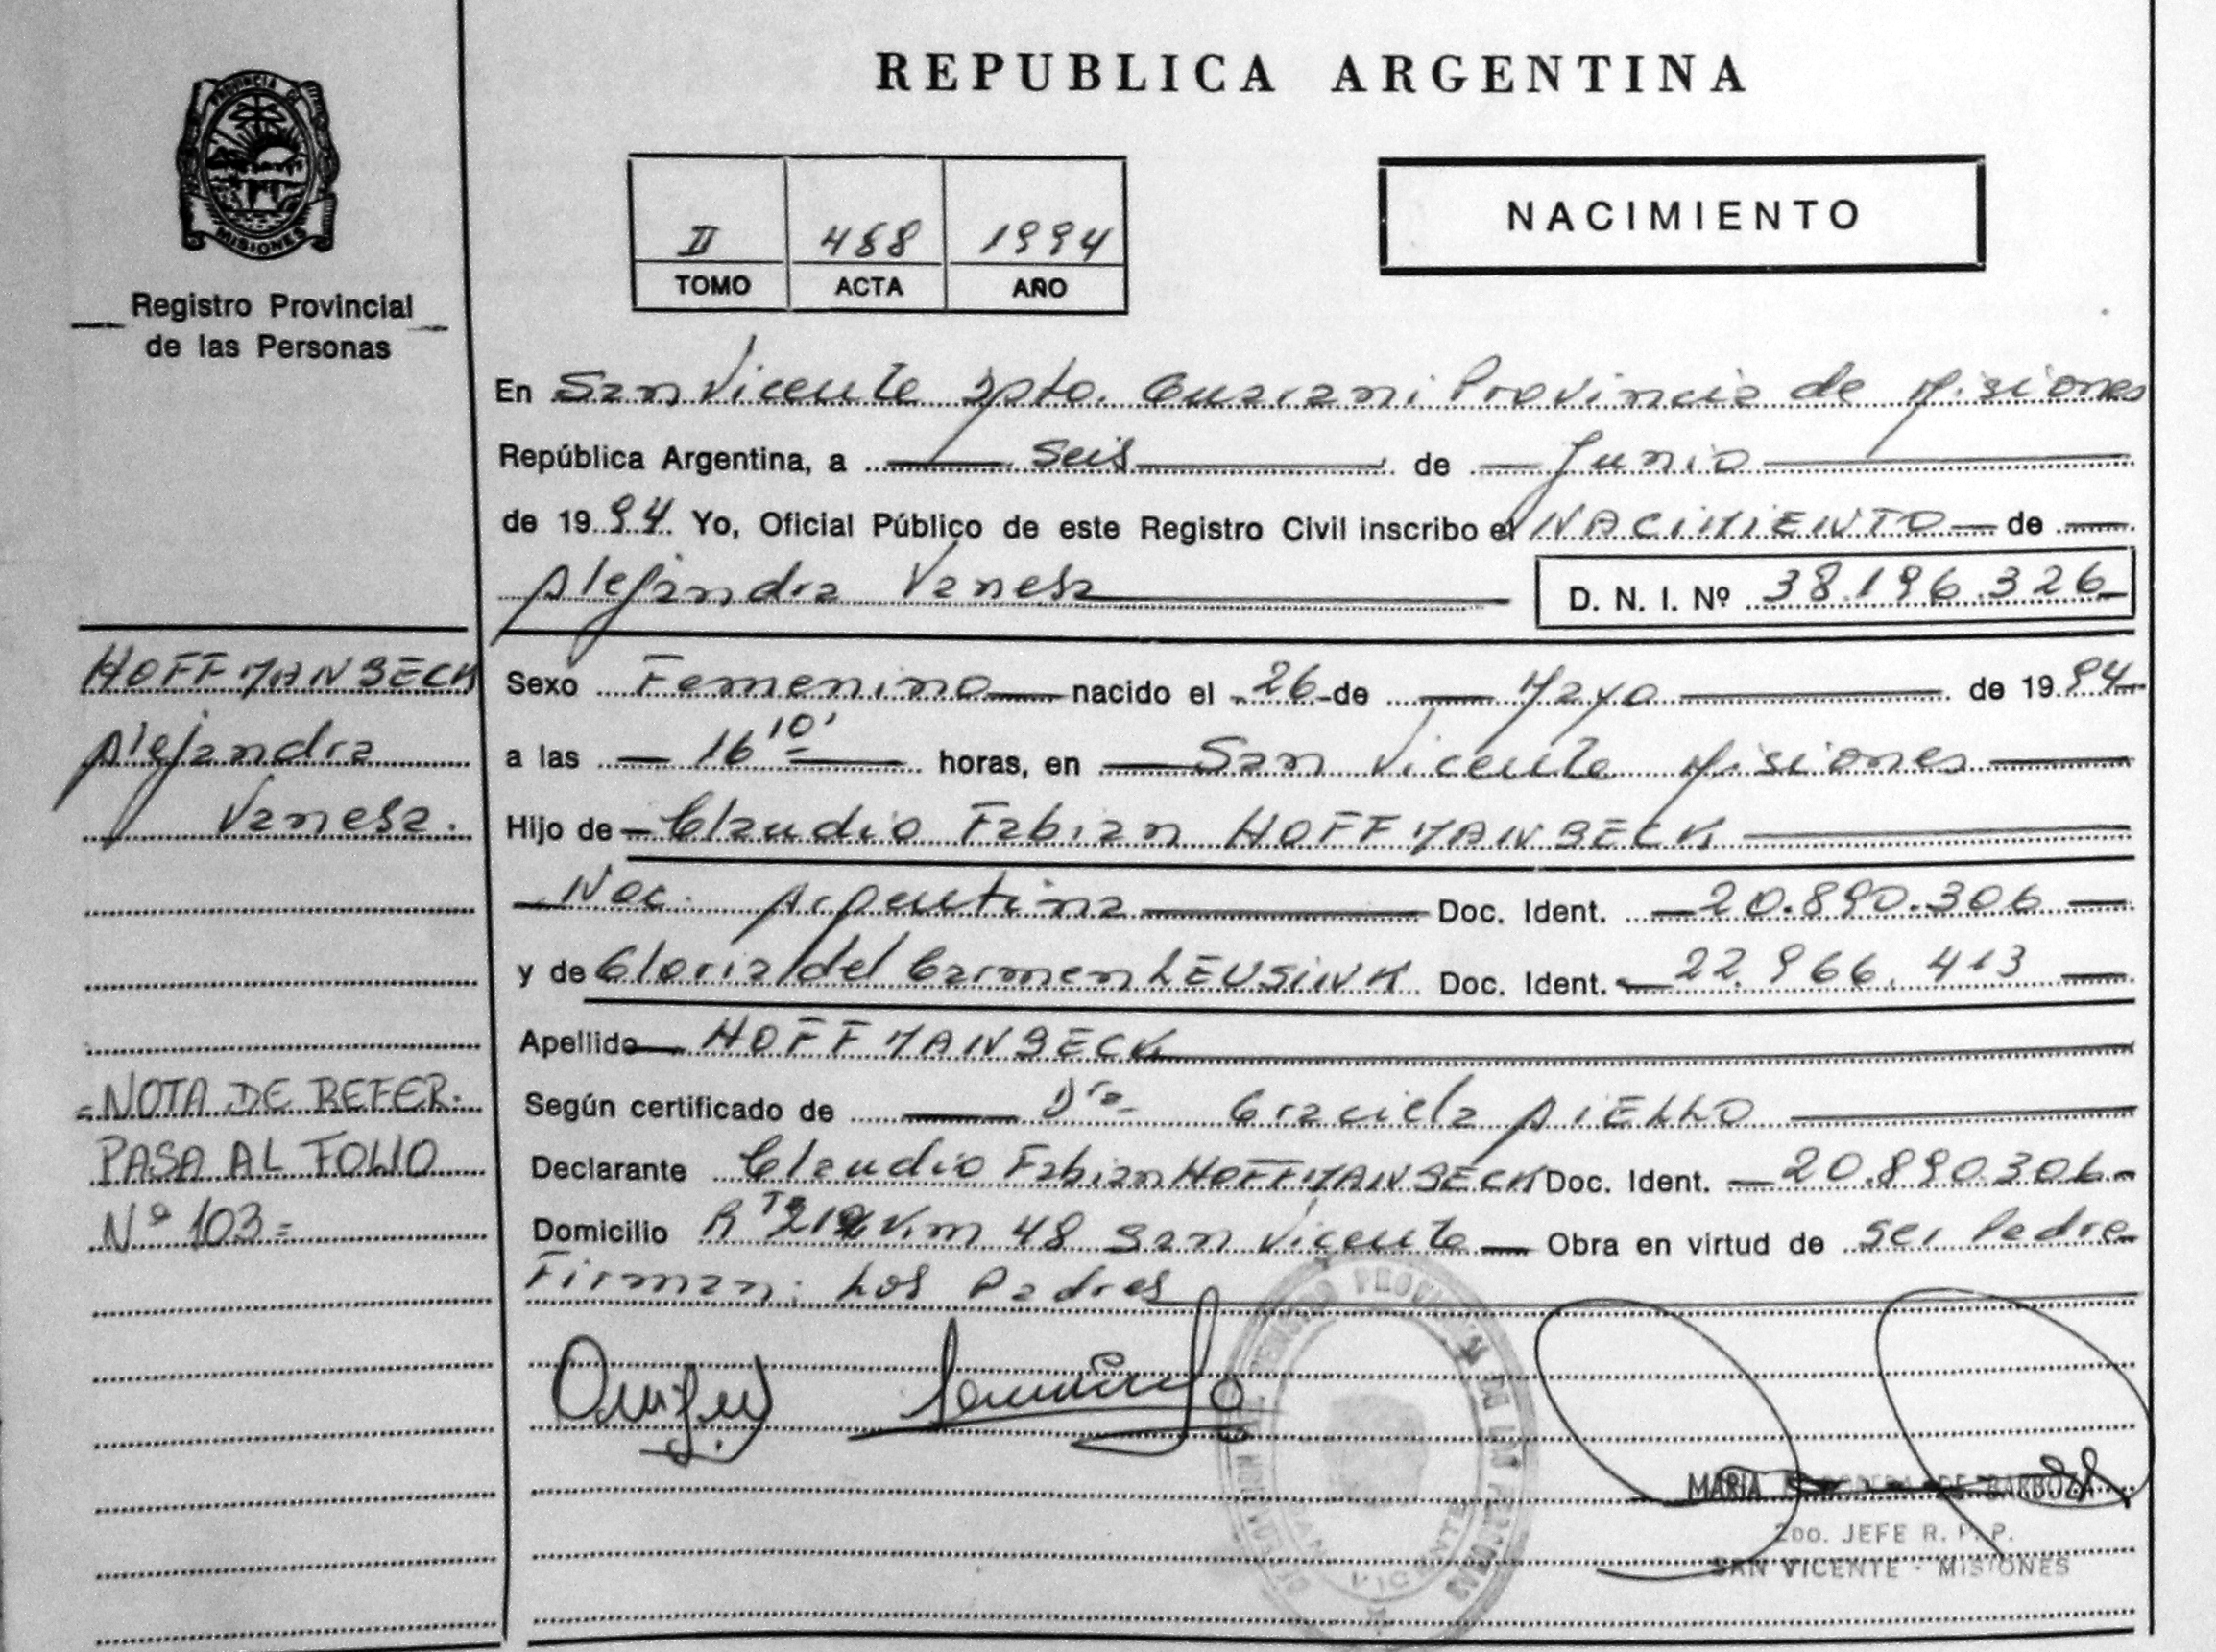 PROVINCIA DE
MISIONES
Registro Provincial
de las Personas
REPUBLICA ARGENTINA
II 488 1994
TOMO ACTA AÑO
NACIMIENTO
En San Vicente Dpto. Guarani Provincia de Misiones
República Argentina, a seis de Junio
de 1994 Yo, Oficial Público de este Registro Civil inscribo el NACIMIENTO de
Alejandra Vanesa D. N. I. Nº 38.196.326
HOFFMANBECK
Alejandra
Vanesa.
NOTA DE REFER.
PASA AL FOLIO
Nº 103=
Sexo Femenino nacido el 26 de Mayo de 1994
a las 16 10' horas, en San Vicente Misiones
Hijo de Claudio Fabian HOFFMANBECK
Nac. Argentina Doc. Ident. 20.890.306
y de Gloria del Carmen LEUSINK Doc. Ident. 22.966.413
Apellido HOFFMANBECK
Según certificado de Dra Graciela AIELLO
Declarante Claudio Fabian HOFFMANBECK Doc. Ident. 20.890.306
Domicilio Km 48 San Vicente Obra en virtud de ser Padre
Firman: Los Padres
MARIA DE BARBOZA
2do. JEFE R. P. P.
SAN VICENTE - MISIONES
SAN VICENTE